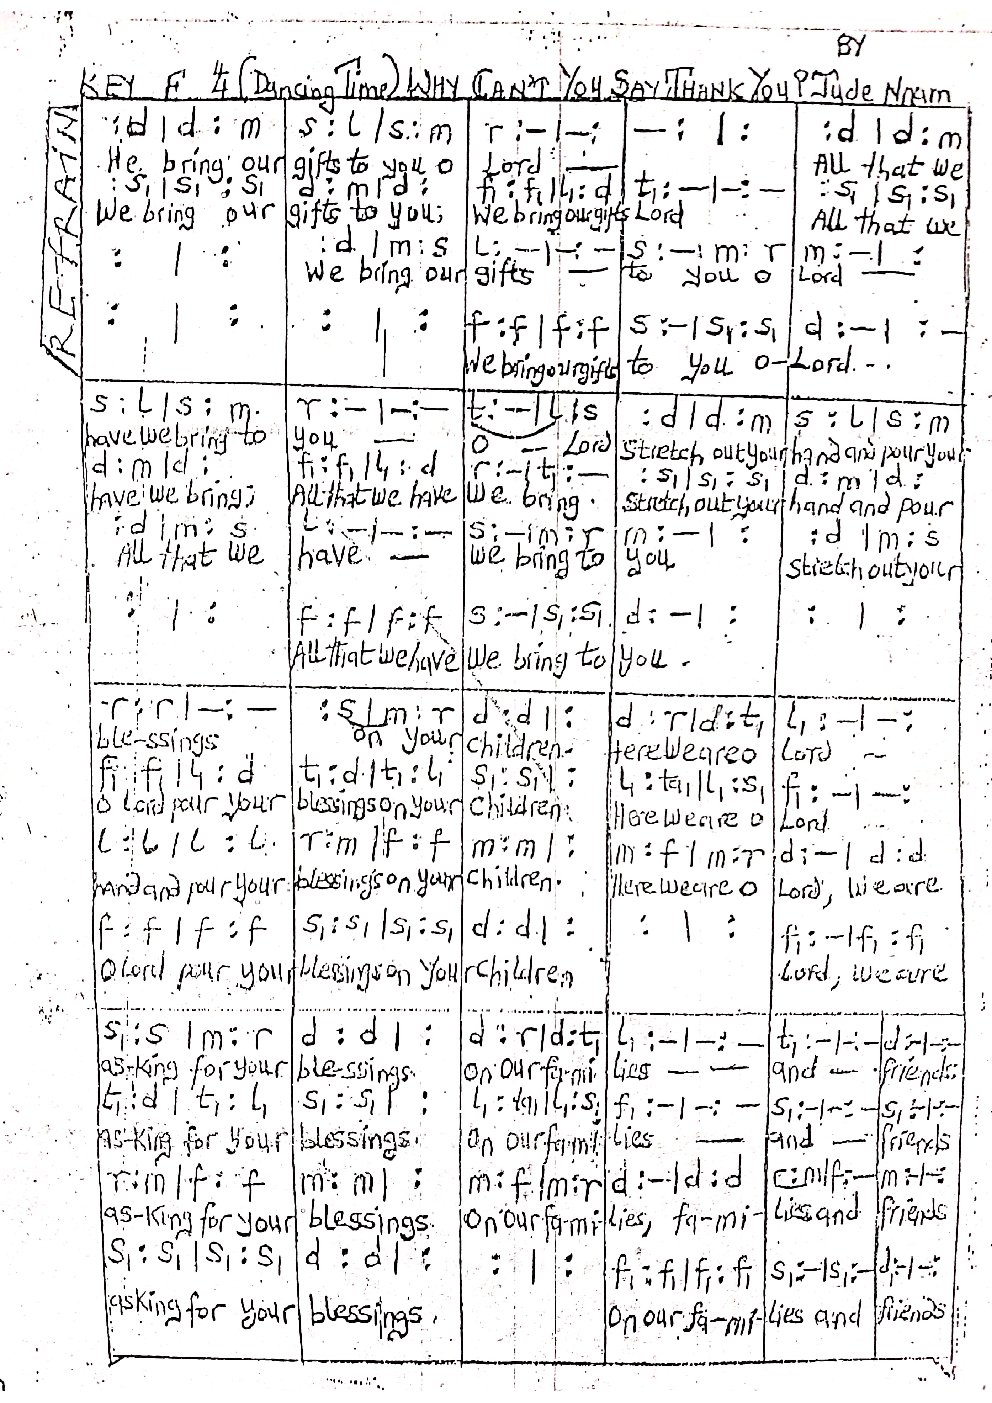 BY
KEY F 4/4 (Dancing Time) WHY CAN'T YOU SAY THANK YOU? Jude Nnam
REFRAIN
:d | d : m  s : l | s : m  r : – | – :  – : | :  :d | d : m
We bring our gifts to you o Lord — All that we
:s₁ | s₁ : s₁  d : m | d :  f₁ : f₁ | l₁ : d  t₁ : – | – : –  :s₁ | s₁ : s₁
We bring our gifts to you; We bring our gifts Lord All that we
: | :  :d | m : s  l : – | – : –  s : – | m : r  m : – | :
We bring our gifts — to you o Lord —
: | :  : | :  f : f | f : f  s : – | s₁ : s₁  d : – | : –
We bring our gifts to you o- Lord...
s : l | s : m  r : – | – : –  t : – | l : s  :d | d : m  s : l | s : m
have we bring to you — O — Lord Stretch out your hand and pour your
d : m | d :  f₁ : f₁ | l₁ : d  r : – | t₁ : –  :s₁ | s₁ : s₁  d : m | d :
have we bring; All that we have We bring. Stretch out your hand and pour
:d | m : s  l : – | – : –  s : – | m : r  m : – | :  :d | m : s
All that we have — we bring to you Stretch out your
: | :  f : f | f : f  s : – | s₁ : s₁  d : – | :  : | :
All that we have We bring to you.
r : r | – : –  :s | m : r  d : d | :  d : r | d : t₁  l₁ : – | – :
ble-ssings on your Children- Here we are o Lord –
f₁ : f₁ | l₁ : d  t₁ : d | t₁ : l₁  s₁ : s₁ | :  l₁ : ta₁ | l₁ : s₁  f₁ : – | – :
O Lord pour your blessings on your Children. Here we are o Lord
l : l | l : l  r : m | f : f  m : m | :  m : f | m : r  d : – | d : d
hand and pour your blessings on your Children. Here we are o Lord, we are
f : f | f : f  s₁ : s₁ | s₁ : s₁  d : d | :  : | :  f₁ : – | f₁ : f₁
O Lord pour your blessings on your Children Lord, we are
s₁ : s | m : r  d : d | :  d : r | d : t₁  l₁ : – | – : –  t₁ : – | – : –  d : – | – : –
as-king for your ble-ssings. On Our fa-mi- lies — — and — friends.
t₁ : d | t₁ : l₁  s₁ : s₁ | :  l₁ : ta₁ | l₁ : s₁  f₁ : – | – : –  s₁ : – | – : –  s₁ : – | – : –
as-king for your blessings. On our fa-mi- lies — and — friends
r : m | f : f  m : m | :  m : f | m : r  d : – | d : d  r : m | f : –  m : – | – :
as-king for your blessings. On Our fa-mi- lies, fa-mi- lies and friends
s₁ : s₁ | s₁ : s₁  d : d | :  : | :  f₁ : f₁ | f₁ : f₁  s₁ : – | s₁ : –  d : – | – :
asking for your blessings. On our fa-mi- lies and friends